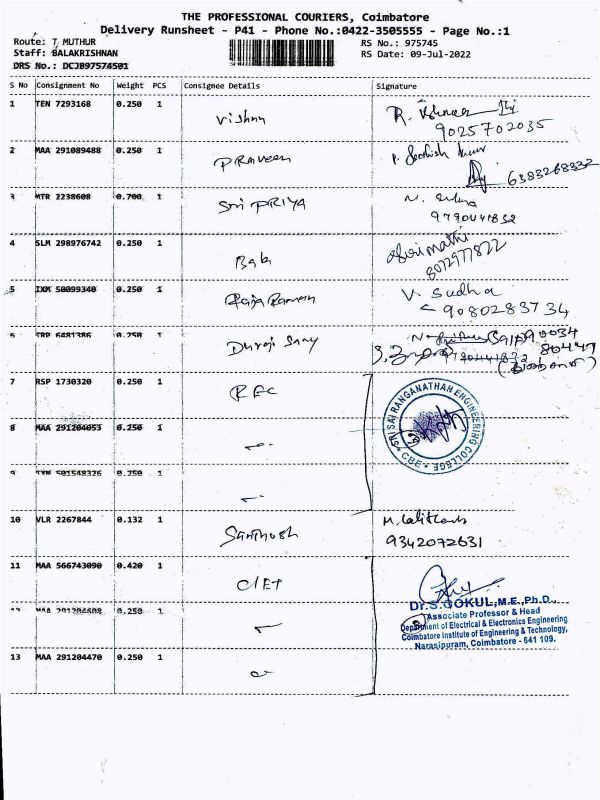 THE PROFESSIONAL COURIERS, Coimbatore
Delivery Runsheet - P41 - Phone No.:0422-3505555 - Page No.:1
Route: T MUTHUR
RS No.: 975745
Staff: BALAKRISHNAN
RS Date: 09-Jul-2022
DRS No.: DCJB97574501
S No Consignment No Weight PCS Consignee Details Signature
1 TEN 7293168 0.250 1 Vishnu
9025702035
2 MAA 291089488 0.250 1 PRAveen
6383268332
3 MTR 2238608 0.700 1 Sri PRIYA
9790441832
4 SLM 298976742 0.250 1 Bala
8072977822
5 IXM 50099340 0.250 1 Raja Raman V. Sudha
9080283734
6 TRP 6481386 0.250 1 Durai Samy
7 RSP 1730320 0.250 1
SRI SAI RANGANATHAN ENGINEERING COLLEGE
CBE
8 MAA 291204053 0.250 1
9 IXM 501548326 0.250 1
10 VLR 2267844 0.132 1 Santhosh
9342072631
11 MAA 566743090 0.420 1 CIET
Dr.S.GOKUL,M.E.,Ph.D.,
Associate Professor & Head
12 MAA 291204608 0.250 1
Department of Electrical & Electronics Engineering
Coimbatore Institute of Engineering & Technology,
Narasipuram, Coimbatore - 641 109.
13 MAA 291204470 0.250 1